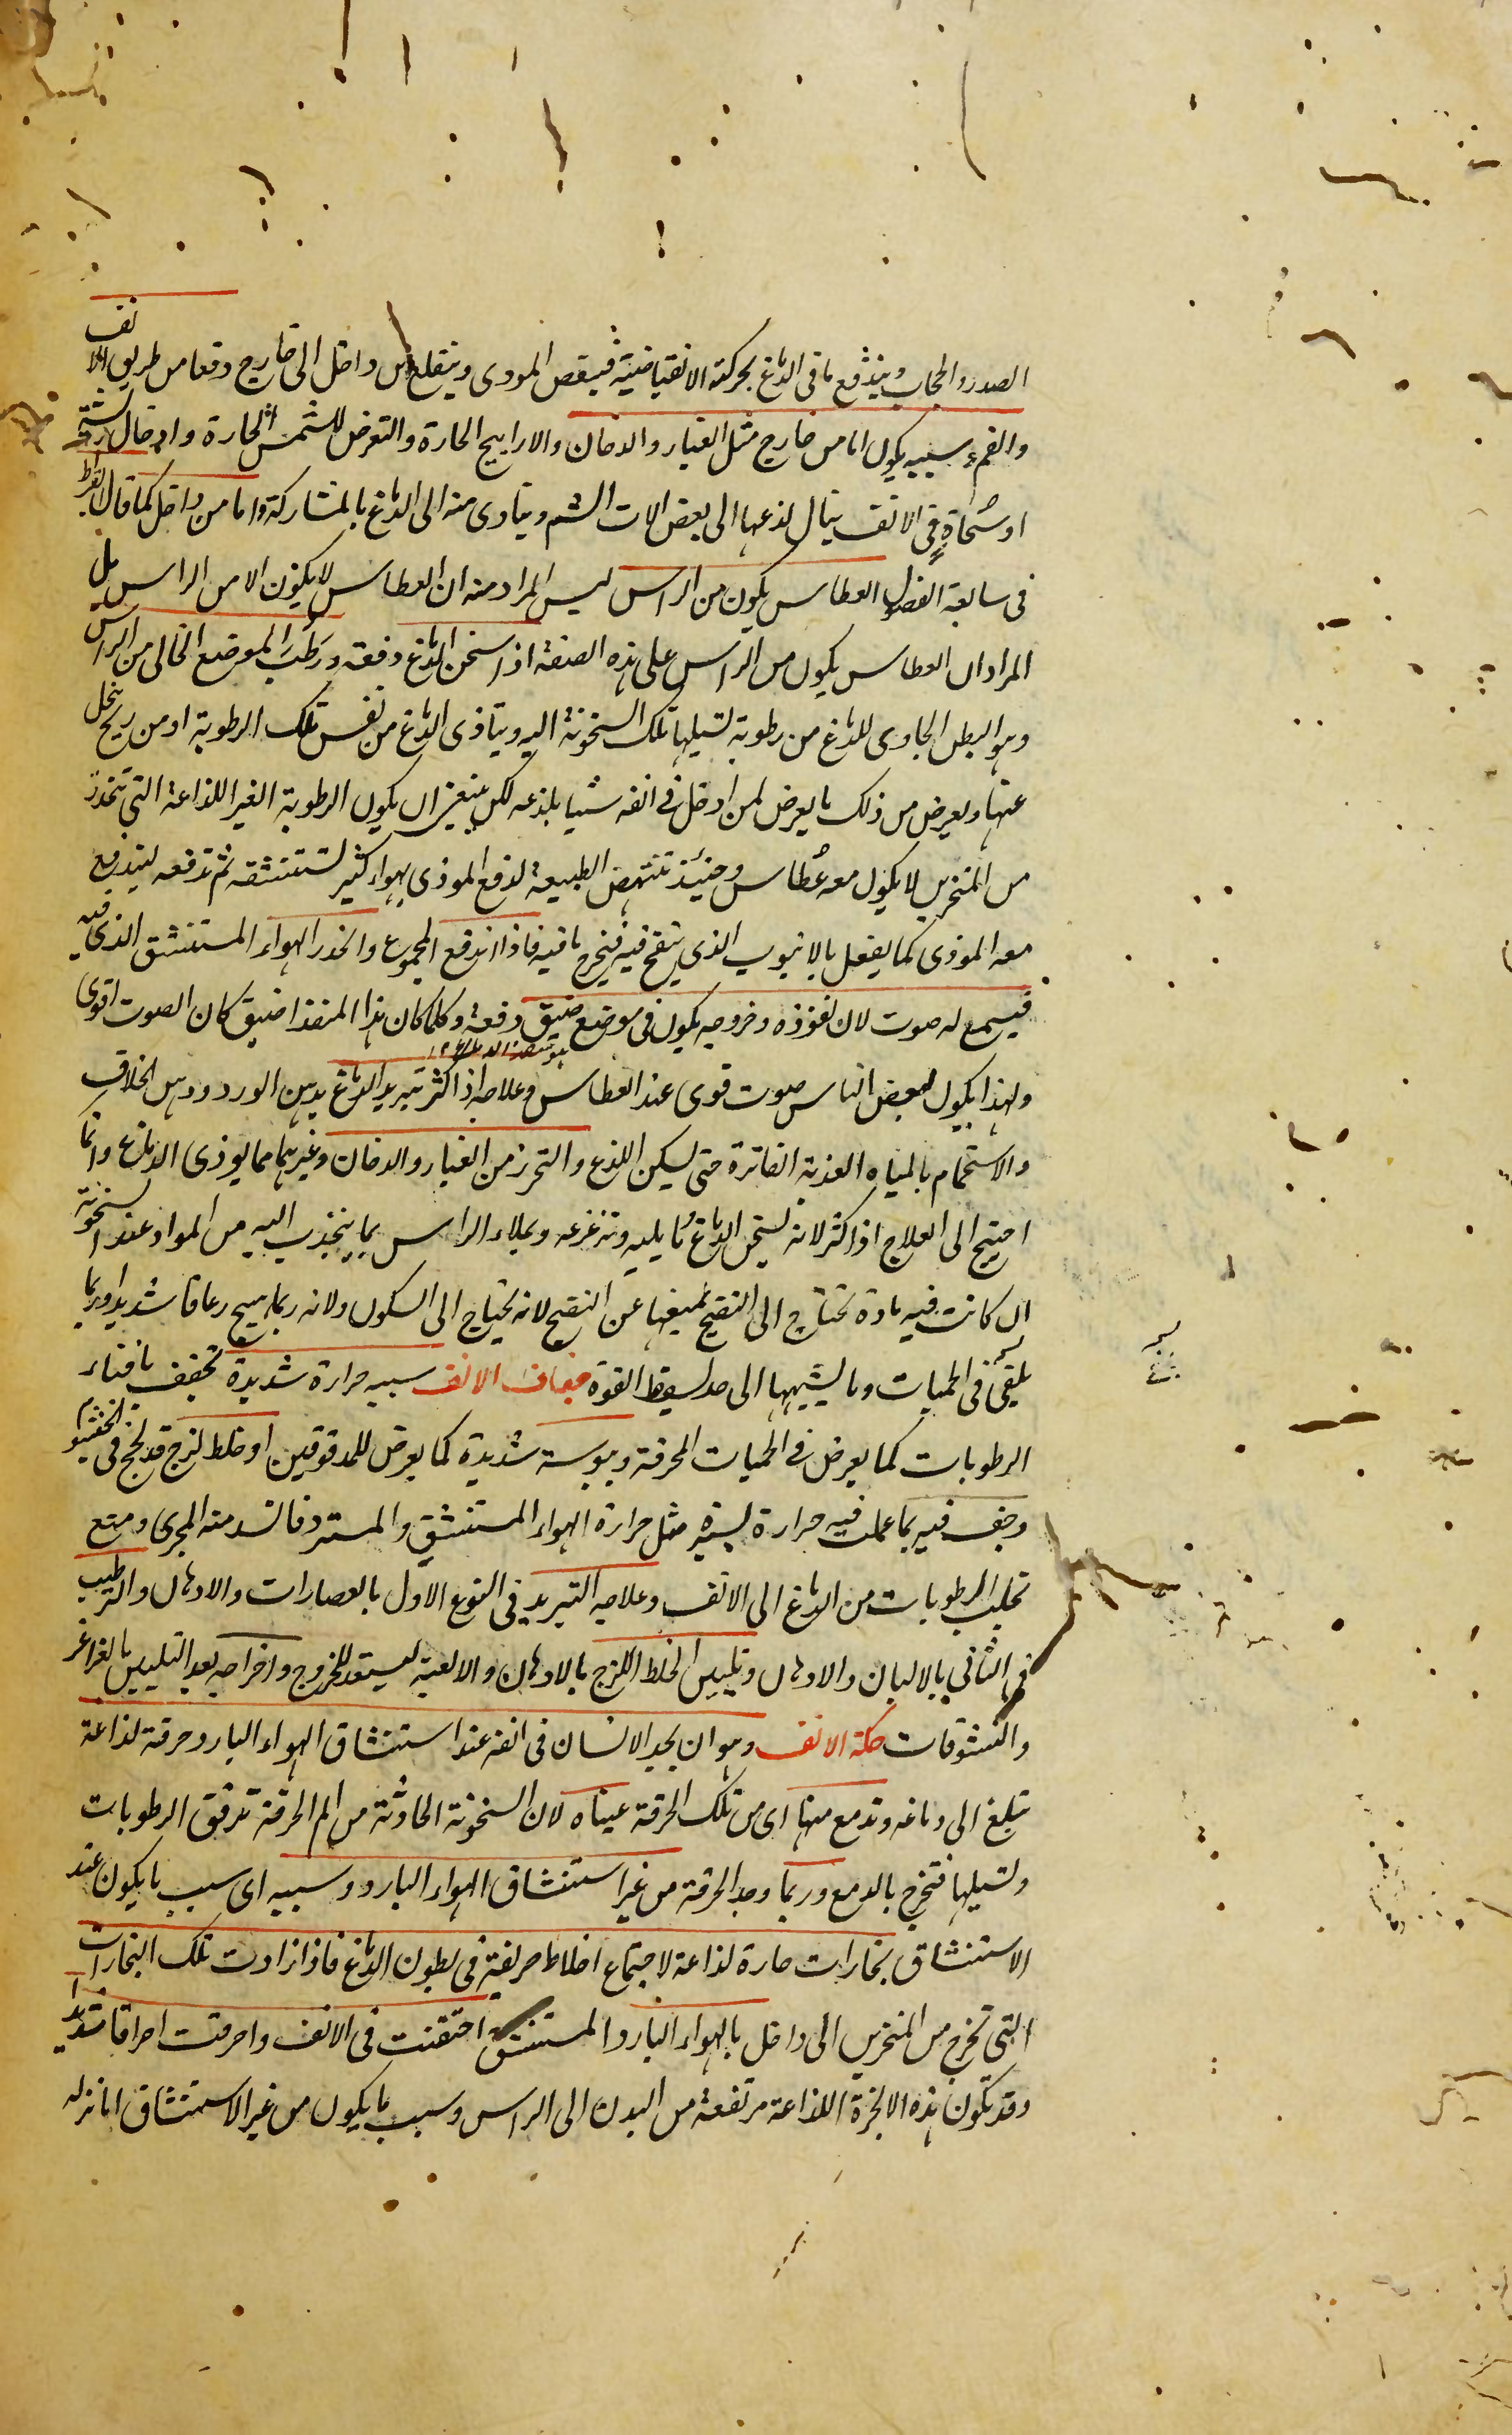 الصدر والحجاب ويندفع ما فى الدماغ بحركته الانقباضية فينتقص الموذى وينقلع من داخل الى خارج دفعا من طريق الانف
والفم وسببه يكون اما من خارج مثل الغبار والدخان والاراييح الحارة والتعرض للشمس الحارة وادخال
او سحاة فى الانف ينال لذعها الى بعض الات الشم ويتادى منه الى الدماغ بالمشاركة واما من داخل كما قال ابقراط
فى سابعة الفصول العطاس يكون من الراس ليس المراد منه ان العطاس لا يكون الا من الراس بل
المراد ان العطاس يكون من الراس على هذه الصفة اذا سخن الدماغ دفعة ورطب الموضع الخالى من الراس
وهو البطن الحاوى للدماغ من رطوبة تسيلها تلك السخونة اليه ويتاذى الدماغ من نفس تلك الرطوبة او من ريح ينحل
عنها ويعرض من ذلك ما يعرض لمن ادخل فى انفه شيا يلذعه لكن ينبغى ان يكون الرطوبة الغير اللذاعة التى تنحدر
من المنخرين لا يكون معه عطاس وحينئذ تنتهض الطبيعة لدفع الموذى بهواء كثير تستنشقه ثم تدفعه ليندفع
معه الموذى كما يفعل بالانبوب الذى ينفخ فيه فيخرج ما فيه فاذا اندفع المجموع وانحدر الهواء المستنشق الذى فيه
فيسمع له صوت لان نفوذه وخروجه يكون فى موضع ضيق دفعة وكلما كان هذا المنفذ اضيق كان الصوت اقوى
ولهذا يكون لبعض الناس صوت قوى عند العطاس وعلاجه اذا كثر تبريد الدماغ بدهن الورد ودهن الخلاف
والاستحمام بالمياه العذبة الفاترة حتى يسكن اللذع والتحرز من الغبار والدخان وغيرهما مما يوذى الدماغ وانما
احتيج الى العلاج اذا كثر لانه يسخن الدماغ وما يليه وتزعزعه ويملاء الراس بما ينجذب اليه من المواد عند السخونة
ان كانت فيه مادة تحتاج الى النضج يمنعها عن النضج لانه يحتاج الى السكون ولانه ربما يهيج رعافا شديدا وربما
يلقى فى الحميات وما يشبهها الى حد يسقط القوة جفاف الانف سببه حرارة شديدة تجفف بافناء
الرطوبات كما يعرض فى الحميات المحرقة ويبوسة شديدة كما يعرض للمدقوقين او خلط لزج قد لحج فى الخيشوم
وجف فيه بما عملت فيه حرارة يسيرة مثل حرارة الهواء المستنشق والمسترد فانسد منه المجرى ومنع
تحلب الرطوبات من الدماغ الى الانف وعلاجه التبريد فى النوع الاول بالعصارات والادهان والترطيب
فى الثانى بالالبان والادهان وتليين الخلط اللزج بالادهان والالعبة ليستعد للخروج واخراجه بعد التليين بالغراغر
والنشوقات حكة الانف وهو ان يجد الانسان فى انفه عند استنشاق الهواء البارد حرقة لذاعة
تبلغ الى دماغه وتدمع منها اى من تلك الحرقة عيناه لان السخونة الحادثة من الم الحرقة ترقق الرطوبات
وتسيلها فتخرج بالدمع وربما وجد الحرقة من غير استنشاق الهواء البارد وسببه اى سبب ما يكون عند
الاستنشاق بخارات حارة لذاعة لاجتماع اخلاط حريفة فى بطون الدماغ فاذا ارادت تلك البخارات
التى تخرج من المنخرين الى داخل بالهواء البارد المستنشق احتقنت فى الانف واحرقت احراقا شديدا
وقد تكون هذه الابخرة اللذاعة مرتفعة من البدن الى الراس وسبب ما يكون من غير الاستنشاق اما نزلة